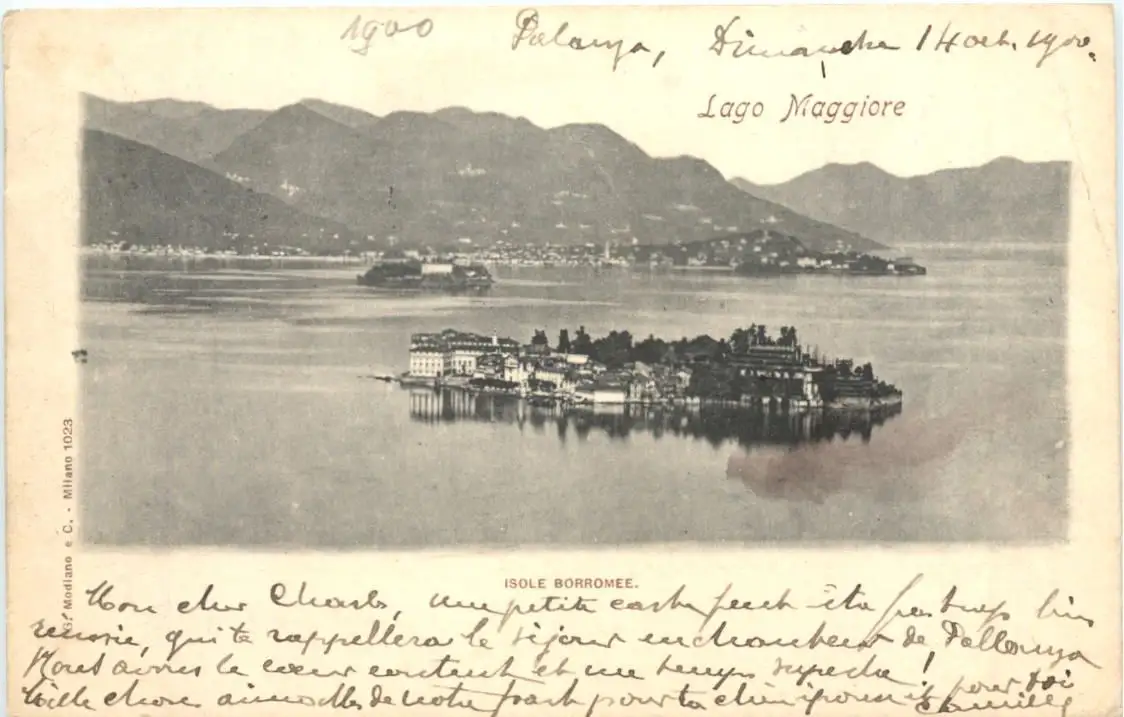 1900 Palanza, Dimanche 14 oct. 1900.
Lago Maggiore
G. Modiano e C. - Milano 1023
ISOLE BORROMEE.
Mon cher Charles, une petite carte peut-être pas trop bien
réussie, qui te rappellera le séjour enchanteur de Pallanza
Nous avons le cœur content et un temps superbe!
Mille choses aimables de notre part pour ta chère et pour toi
Camille